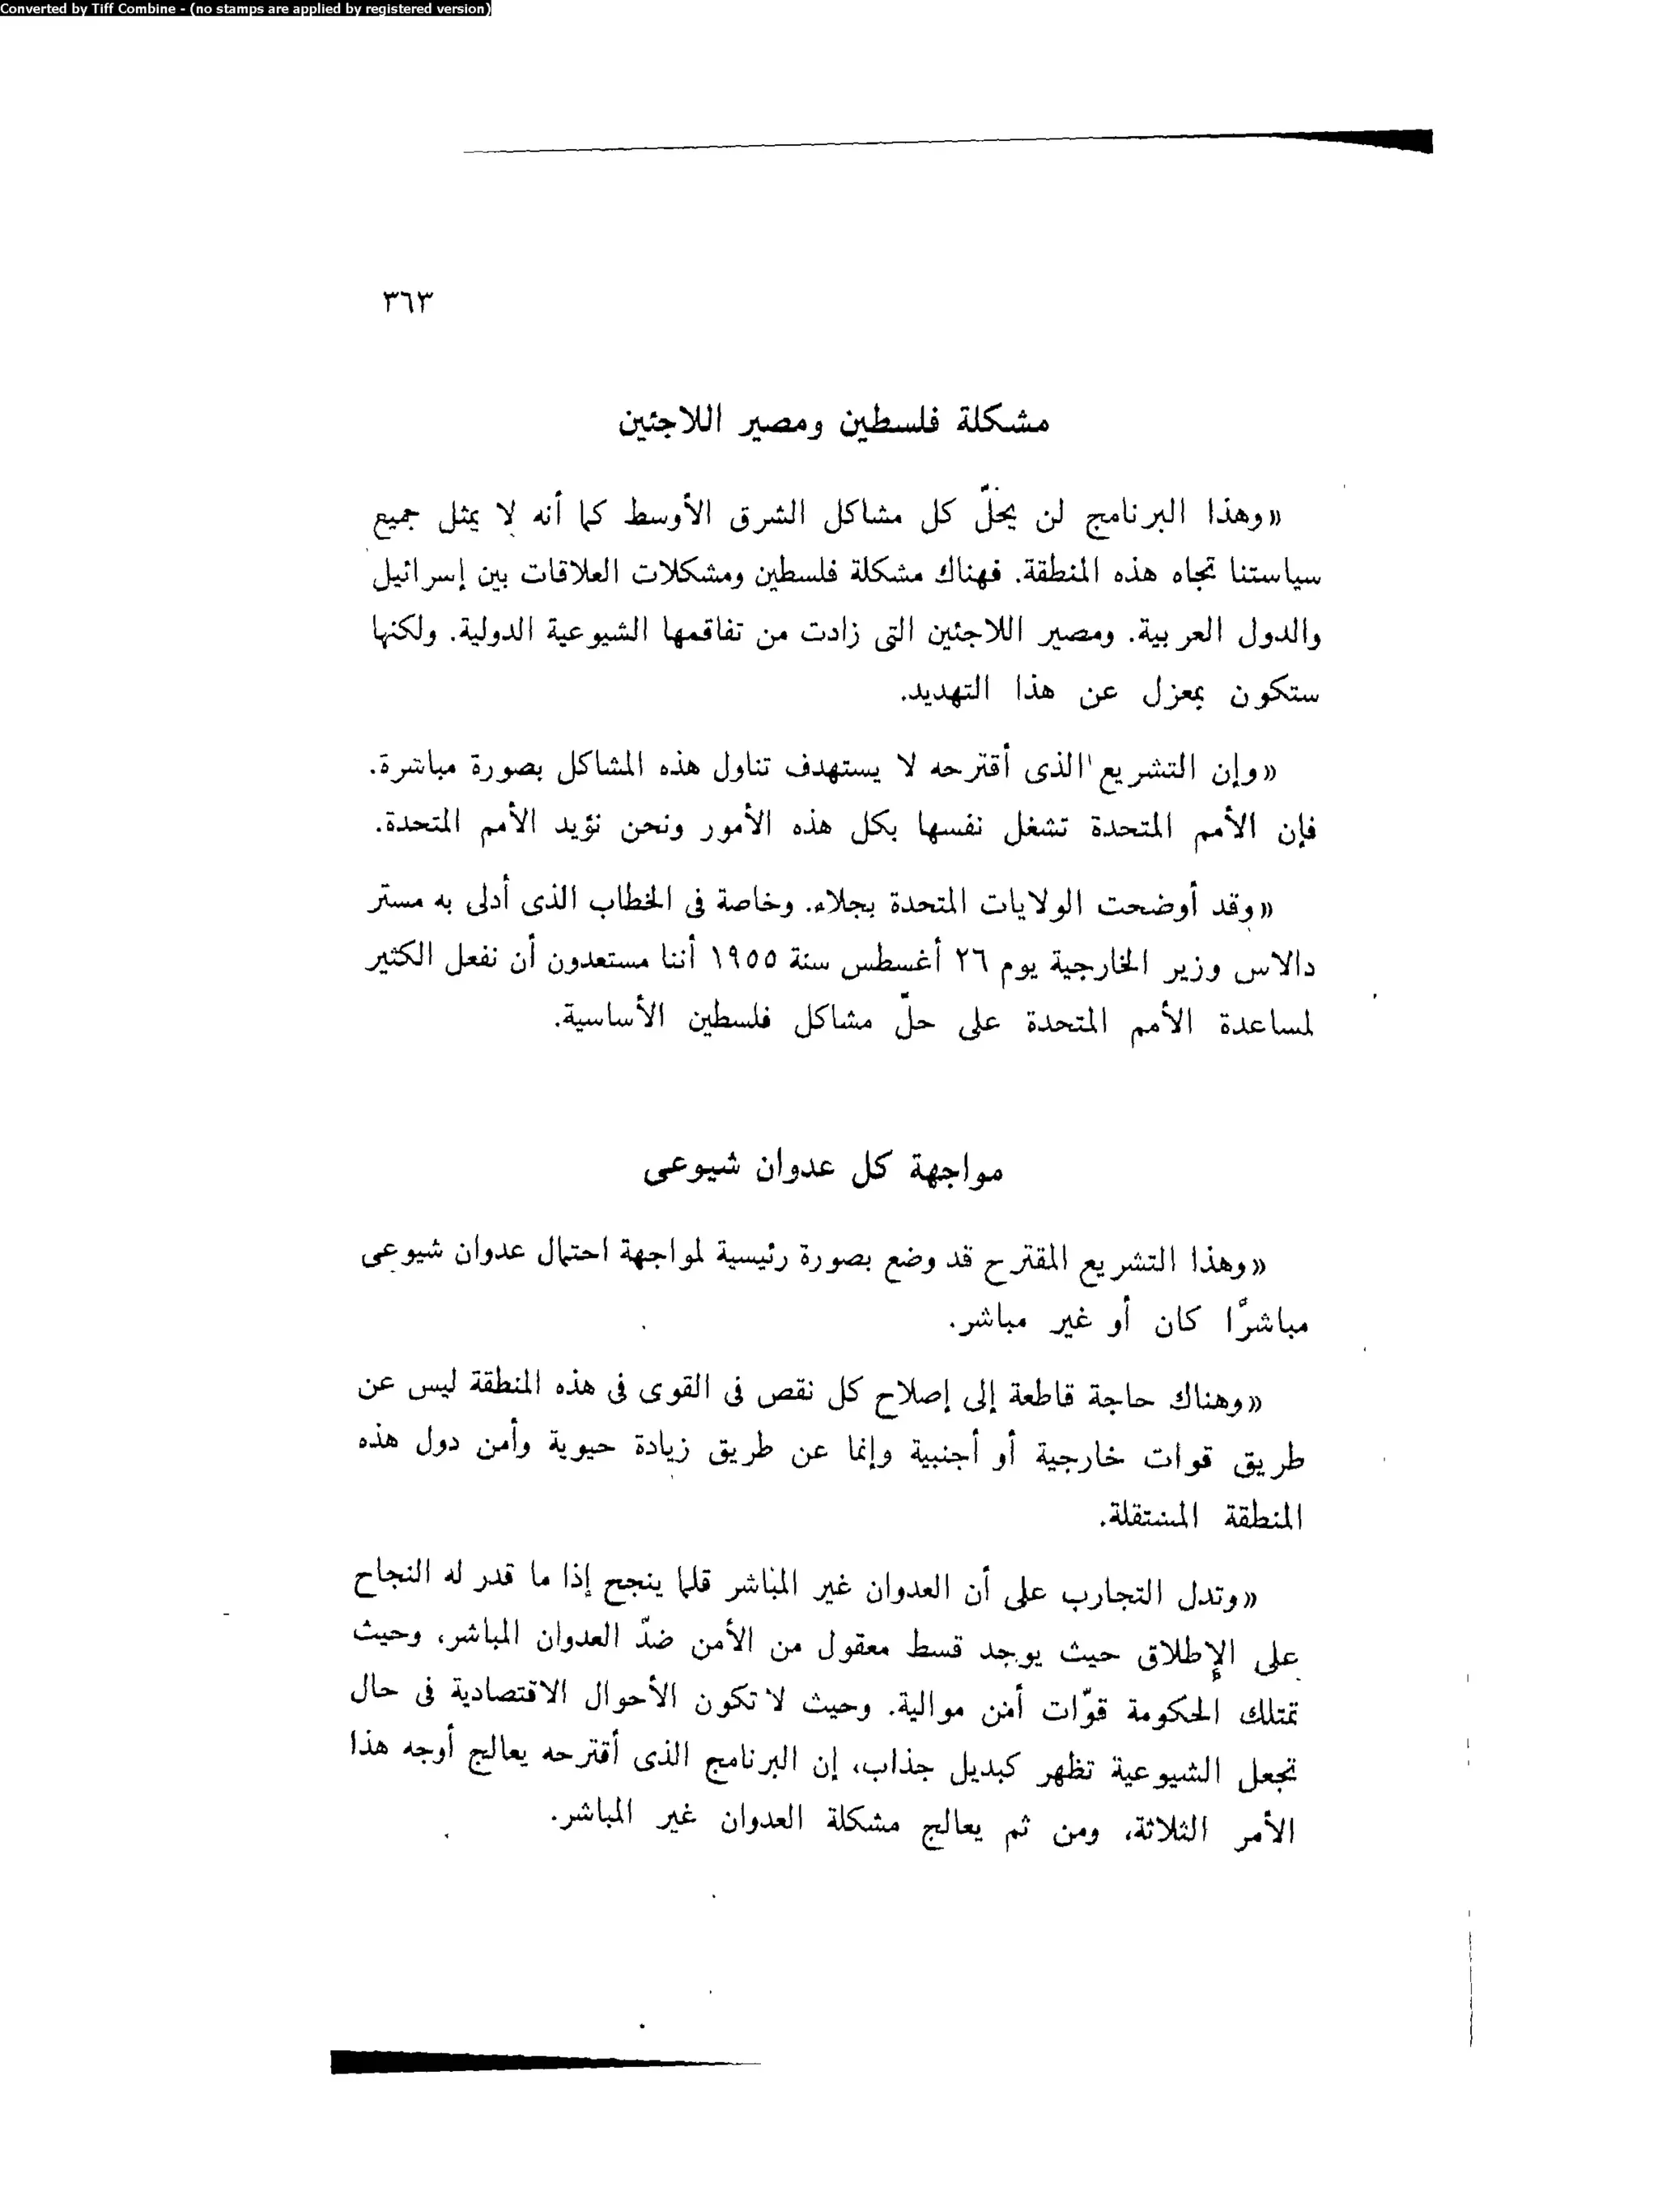 Converted by Tiff Combine - (no stamps are applied by registered version)
٣٦٣
مشكلة فلسطين ومصير اللاجئين
«وهذا البرنامج لن يحلّ كل مشاكل الشرق الأوسط كما أنه لا يمثل جميع
سياستنا تجاه هذه المنطقة. فهناك مشكلة فلسطين ومشكلات العلاقات بين إسرائيل
والدول العربية. ومصير اللاجئين التى زادت من تفاقمها الشيوعية الدولية. ولكنها
ستكون بمعزل عن هذا التهديد.
«وإن التشريع الذى أقترحه لا يستهدف تناول هذه المشاكل بصورة مباشرة.
فإن الأمم المتحدة تشغل نفسها بكل هذه الأمور ونحن نؤيد الأمم المتحدة.
«وقد أوضحت الولايات المتحدة بجلاء. وخاصة فى الخطاب الذى أدلى به مستر
دالاس وزير الخارجية يوم ٢٦ أغسطس سنة ١٩٥٥ أننا مستعدون أن نفعل الكثير
لمساعدة الأمم المتحدة على حلّ مشاكل فلسطين الأساسية.
مواجهة كل عدوان شيوعى
«وهذا التشريع المقترح قد وضع بصورة رئيسية لمواجهة احتمال عدوان شيوعى
مباشرًا كان أو غير مباشر.
«وهناك حاجة قاطعة إلى إصلاح كل نقص فى القوى فى هذه المنطقة ليس عن
طريق قوات خارجية أو أجنبية وإنما عن طريق زيادة حيوية وأمن دول هذه
المنطقة المستقلة.
«وتدل التجارب على أن العدوان غير المباشر قلما ينجح إذا ما قدر له النجاح
على الإطلاق حيث يوجد قسط معقول من الأمن ضدّ العدوان المباشر، وحيث
تمتلك الحكومة قوّات أمن موالية. وحيث لا تكون الأحوال الاقتصادية فى حال
تجعل الشيوعية تظهر كبديل جذاب، إن البرنامج الذى أقترحه يعالج أوجه هذا
الأمر الثلاثة، ومن ثم يعالج مشكلة العدوان غير المباشر.